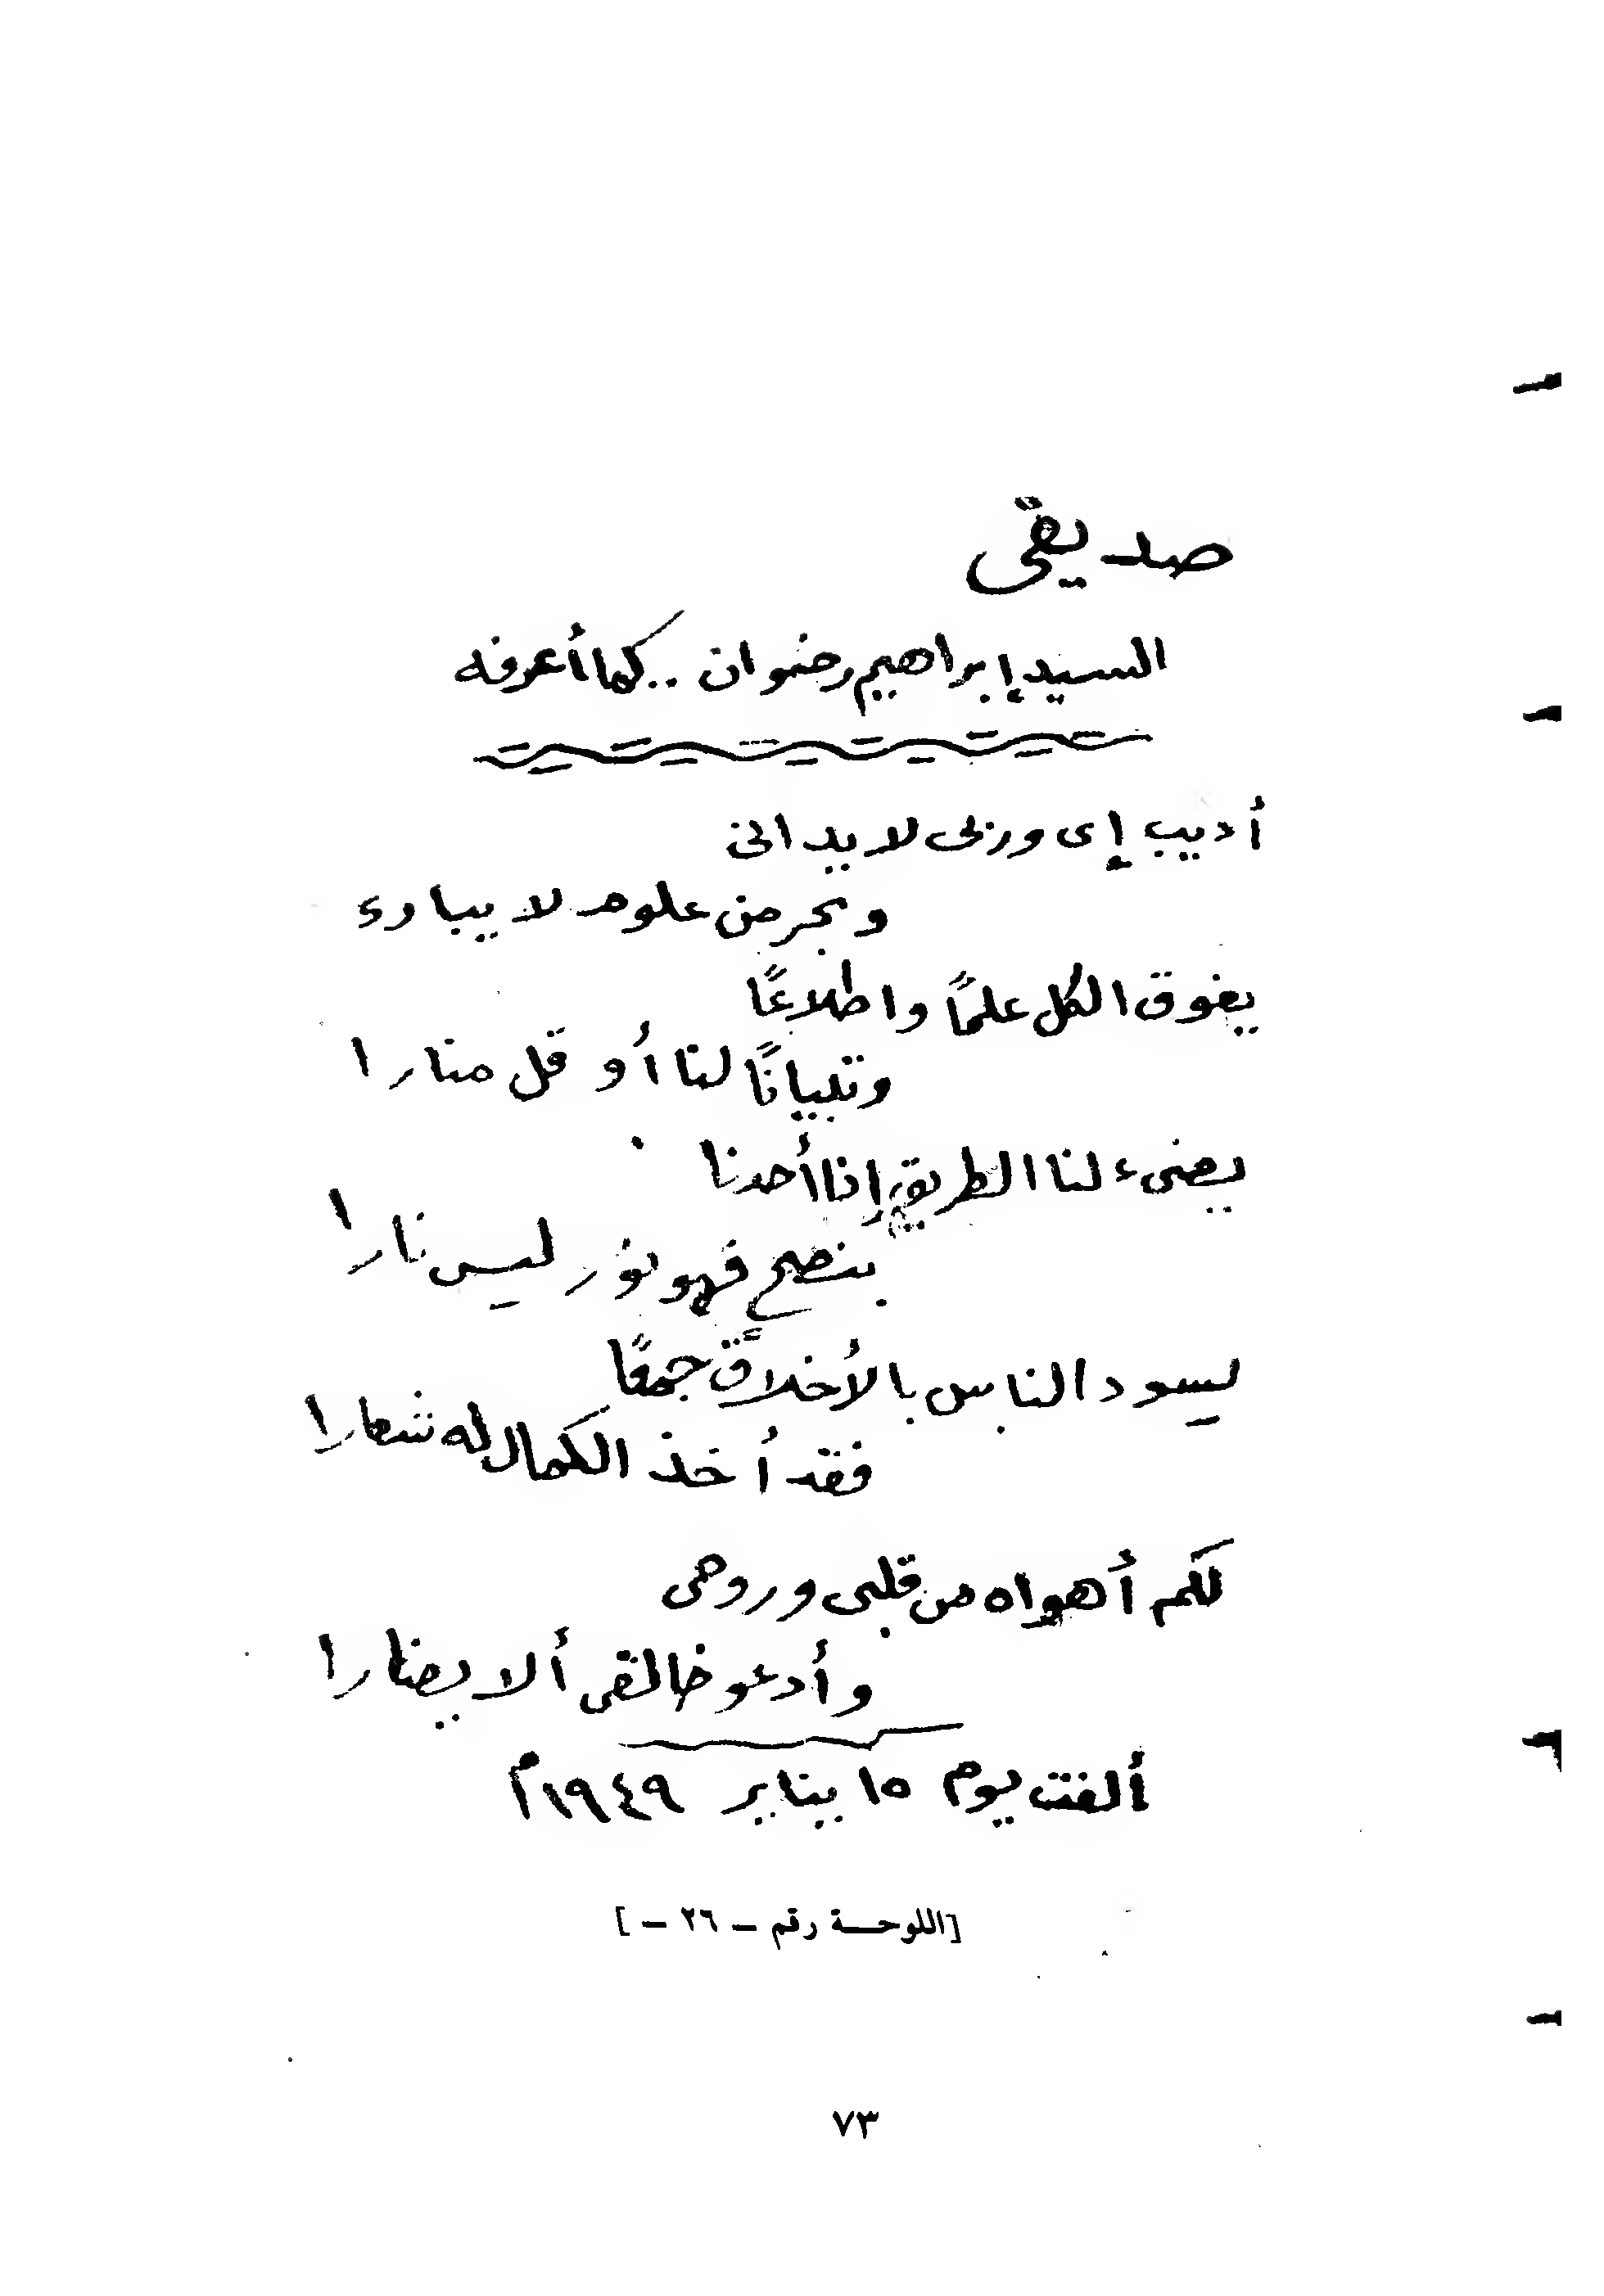 صديقى
السيد إبراهيم رضوان .. كما أعرفه
أديب إى وربى لا يدانى
وبحر من علوم لا يبارى
يفوق الكل علمًا واطلاعًا
وتبيانًا لنا أو قل منارا
يضىء لنا الطريق إذا أحدنا
بنصح فهو نور ليس نارا
يسود الناس بالأخلاق جمعًا
فقد أخذ الكمال له شعارا
لكم أهواه من قلبى وروحى
وأدعو خالقى ألا يضارا
ألفت يوم ١٥ يناير ١٩٤٩م
[اللوحة رقم - ٢٦ -]
٧٣